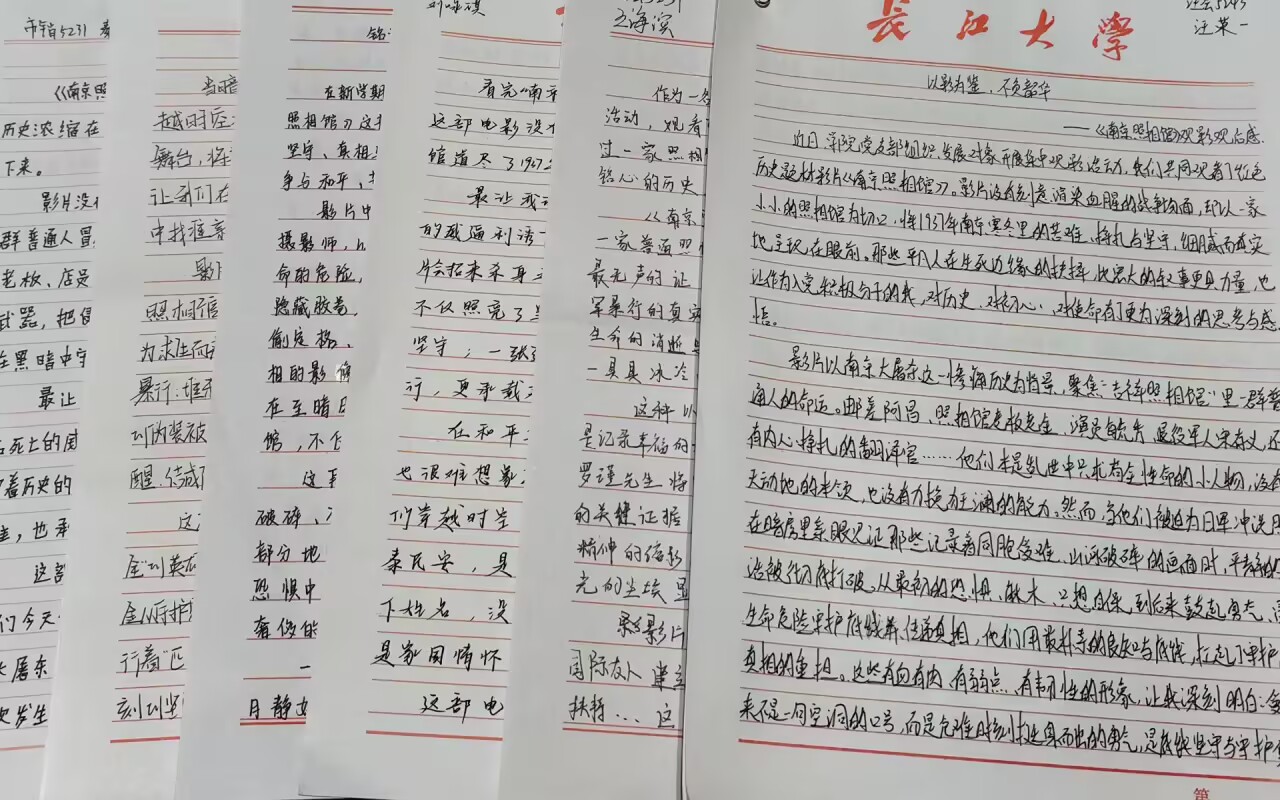 市销5231
《南京照
历史浓缩在
下来。
影片没
群普通人冒
老板、店员
武器，把侵
在黑暗中守
最让
死上的威
着历史的
，也承
这部
们今天
大屠杀
次发生
当暗
越时空
舞台，将
让我们在
中找准奋
影片
照相馆
为求生而
暴行·堆
到伪装被
醒，结成
这
金"到英
全从好护
行着"匹
刻到坚
铭
在新学期
照相馆》这
坚守、真相
争与和平，
影片中
摄影师，
命的危险，
隐藏胶卷
偷定格、
相的影像
在至暗
馆，不仅
这
破碎、
部分地
恐惧中
奢侈
一
月静
看完《南京
这部电影没
馆道尽了1937
最让我
的威逼利诱
片会招来杀身
不仅照亮了
坚守；一张
行，更承载
在和平
也很难想象
们穿越时空
泰民安，是
下姓名，没
是家国情怀
这部电
王海滨
作为一名
活动，观看
过一家照相
铭心的历史
《南京
一家普通照
最无声的证
军暴行的真实
生命的消逝
一具具冰冷
这种以
是记录幸福的
罗瑾先生将
的关键证据
精神的缩影
光的尘埃显
影片
国际友人
扶持...这
长江大学
5243
汪荣一
以影为鉴，不负韶华
——《南京照相馆》观影观后感
近日，学院党支部组织发展对象开展集中观影活动，我们共同观看了红色
历史题材影片《南京照相馆》。影片没有刻意渲染血腥的战争场面，却以一家
小小的照相馆为切口，将1937年南京寒冬里的苦难、挣扎与坚守，细腻而真实
地呈现在眼前。那些平凡人在生死边缘的抉择，比宏大的叙事更具力量，也
让作为入党积极分子的我，对历史、对初心、对使命有了更为深刻的思考与感
悟。
影片以南京大屠杀这一惨痛历史为背景，聚焦"吉祥照相馆"里一群普
通人的命运。邮差阿昌、照相馆老板老金、演员毓秀、退役军人宋存义，还
有内心挣扎的翻译官……他们本是乱世中只求苟全性命的小人物，没有
天动地的本领，也没有力挽狂澜的能力。然而，当他们被迫为日军冲洗
在暗房里亲眼见证那些记录着同胞受难、山河破碎的画面时，平静的
活被彻底打破。从最初的恐惧、麻木、只想自保，到后来鼓起勇气，
生命危险守护底线并传递真相，他们用最朴素的良知与底线，扛起了守护
真相的重担。这些有血有肉、有弱点、有韧性的形象，让我深刻明白：
来不是一句空洞的口号，而是危难时刻挺身而出的勇气，是底线坚守与守护
第